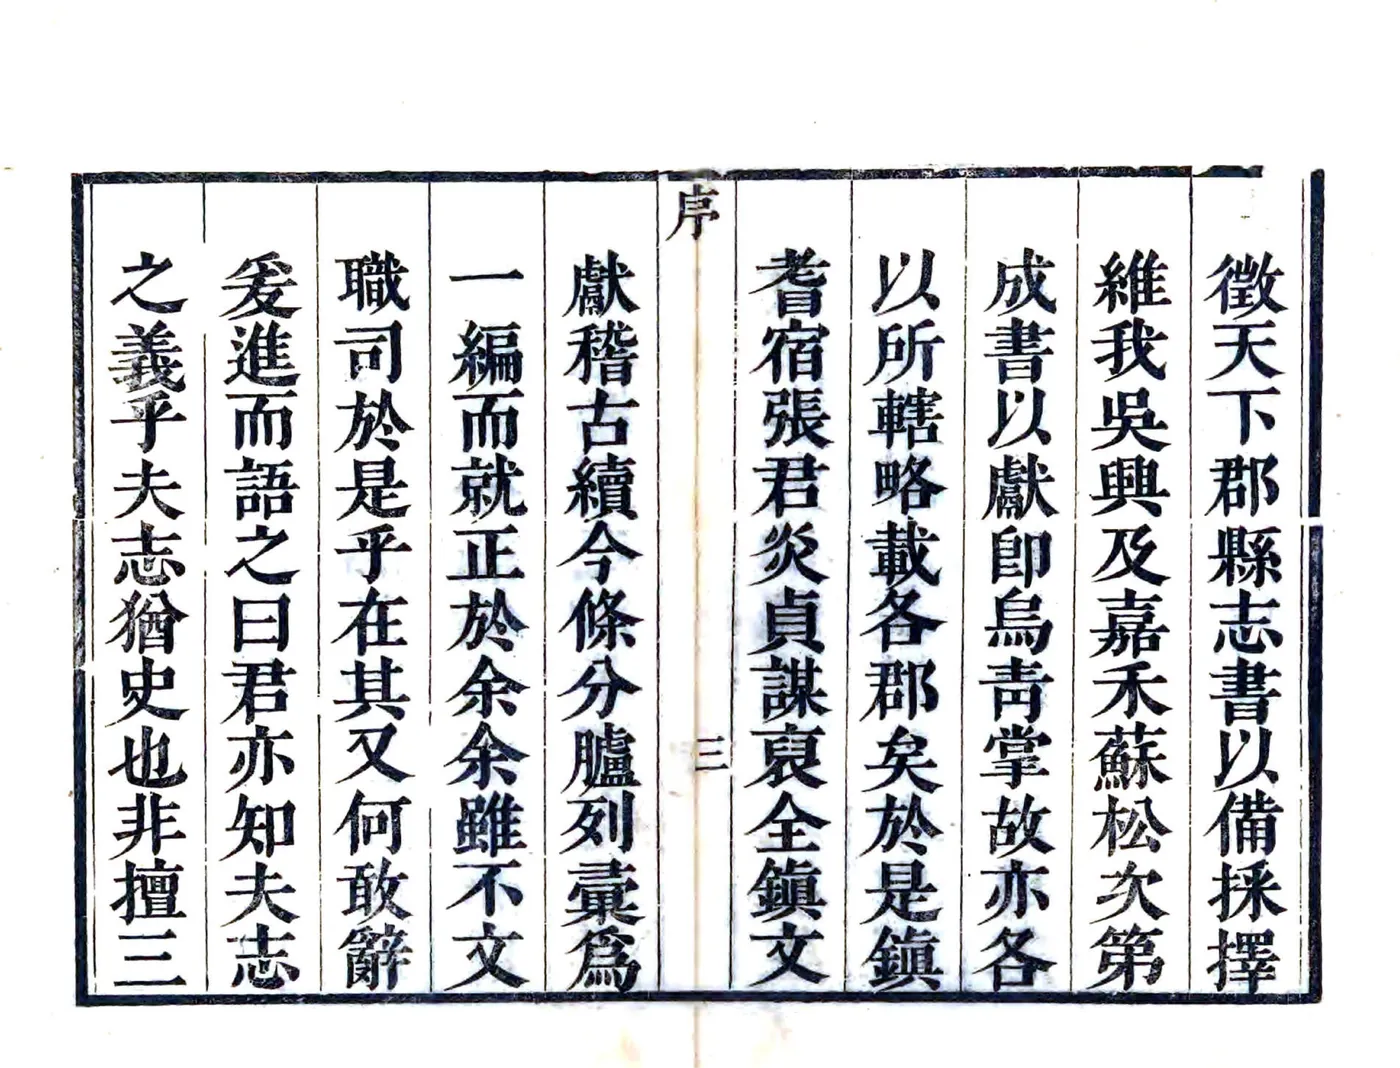 徵天下郡縣志書以備採擇
維我吳興及嘉禾蘇松次第
成書以獻卽烏靑掌故亦各
以所轄略載各郡矣於是鎭
耆宿張君炎貞謀裒全鎭文
序
三
獻稽古續今條分臚列彙爲
一編而就正於余余雖不文
職司於是乎在其又何敢辭
爰進而語之曰君亦知夫志
之義乎夫志猶史也非擅三